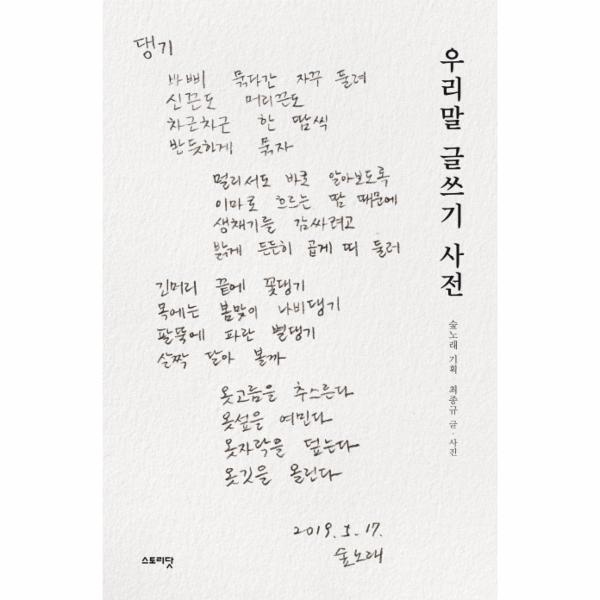 댕기
바삐 묶다간 자꾸 들려
신끈도 머리끈도
차근차근 한 땀씩
반듯하게 묶자
멀리서도 바로 알아보도록
이마로 흐르는 땀 때문에
생채기를 감싸려고
밝게 든든히 곱게 띠 둘러
긴머리 끝에 꽃댕기
목에는 봄맞이 나비댕기
팔뚝에 파란 별댕기
살짝 달아 볼까
옷고름을 추스른다
옷섶을 여민다
옷자락을 덮는다
옷깃을 올린다
2019. 5. 17.
숲노래
우리말 글쓰기 사전
숲노래 기획 최종규 글·사진
스토리닷